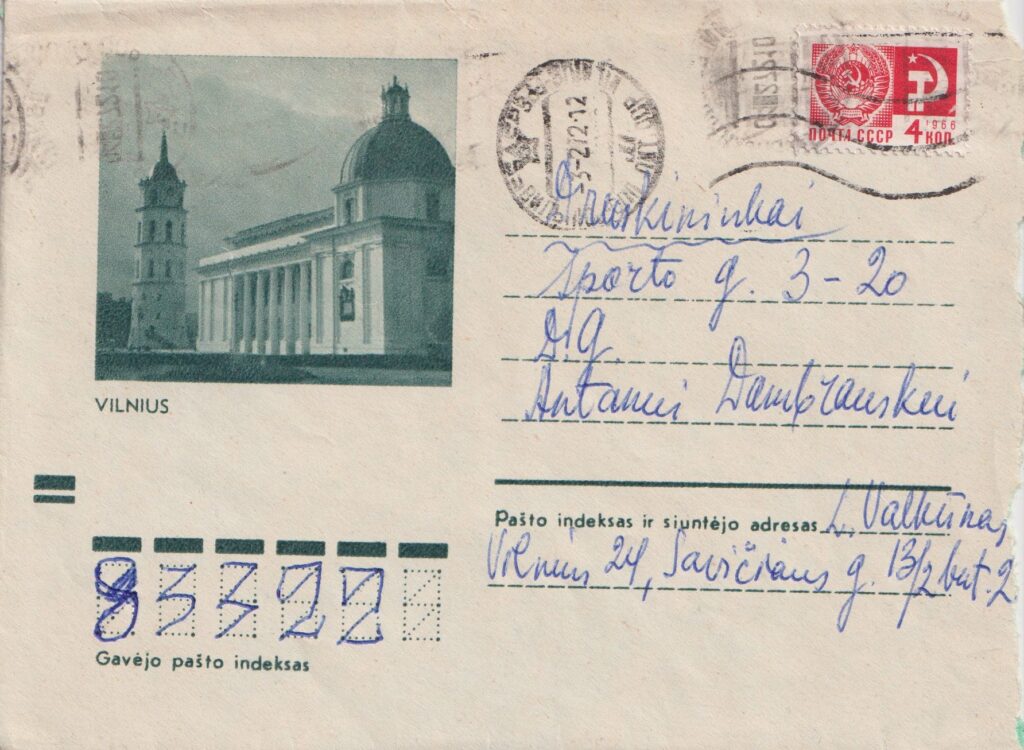 ПОЧТА СССР
1966
4 КОП.
-2 72-12
Druskininkai
Sporto g. 3-20
D.g.
Antanui Dambrauskui
VILNIUS
Pašto indeksas ir siuntėjo adresas L. Valkūnas,
Vilnius 24, Savičiaus g. 13/2 but. 2
83322
Gavėjo pašto indeksas